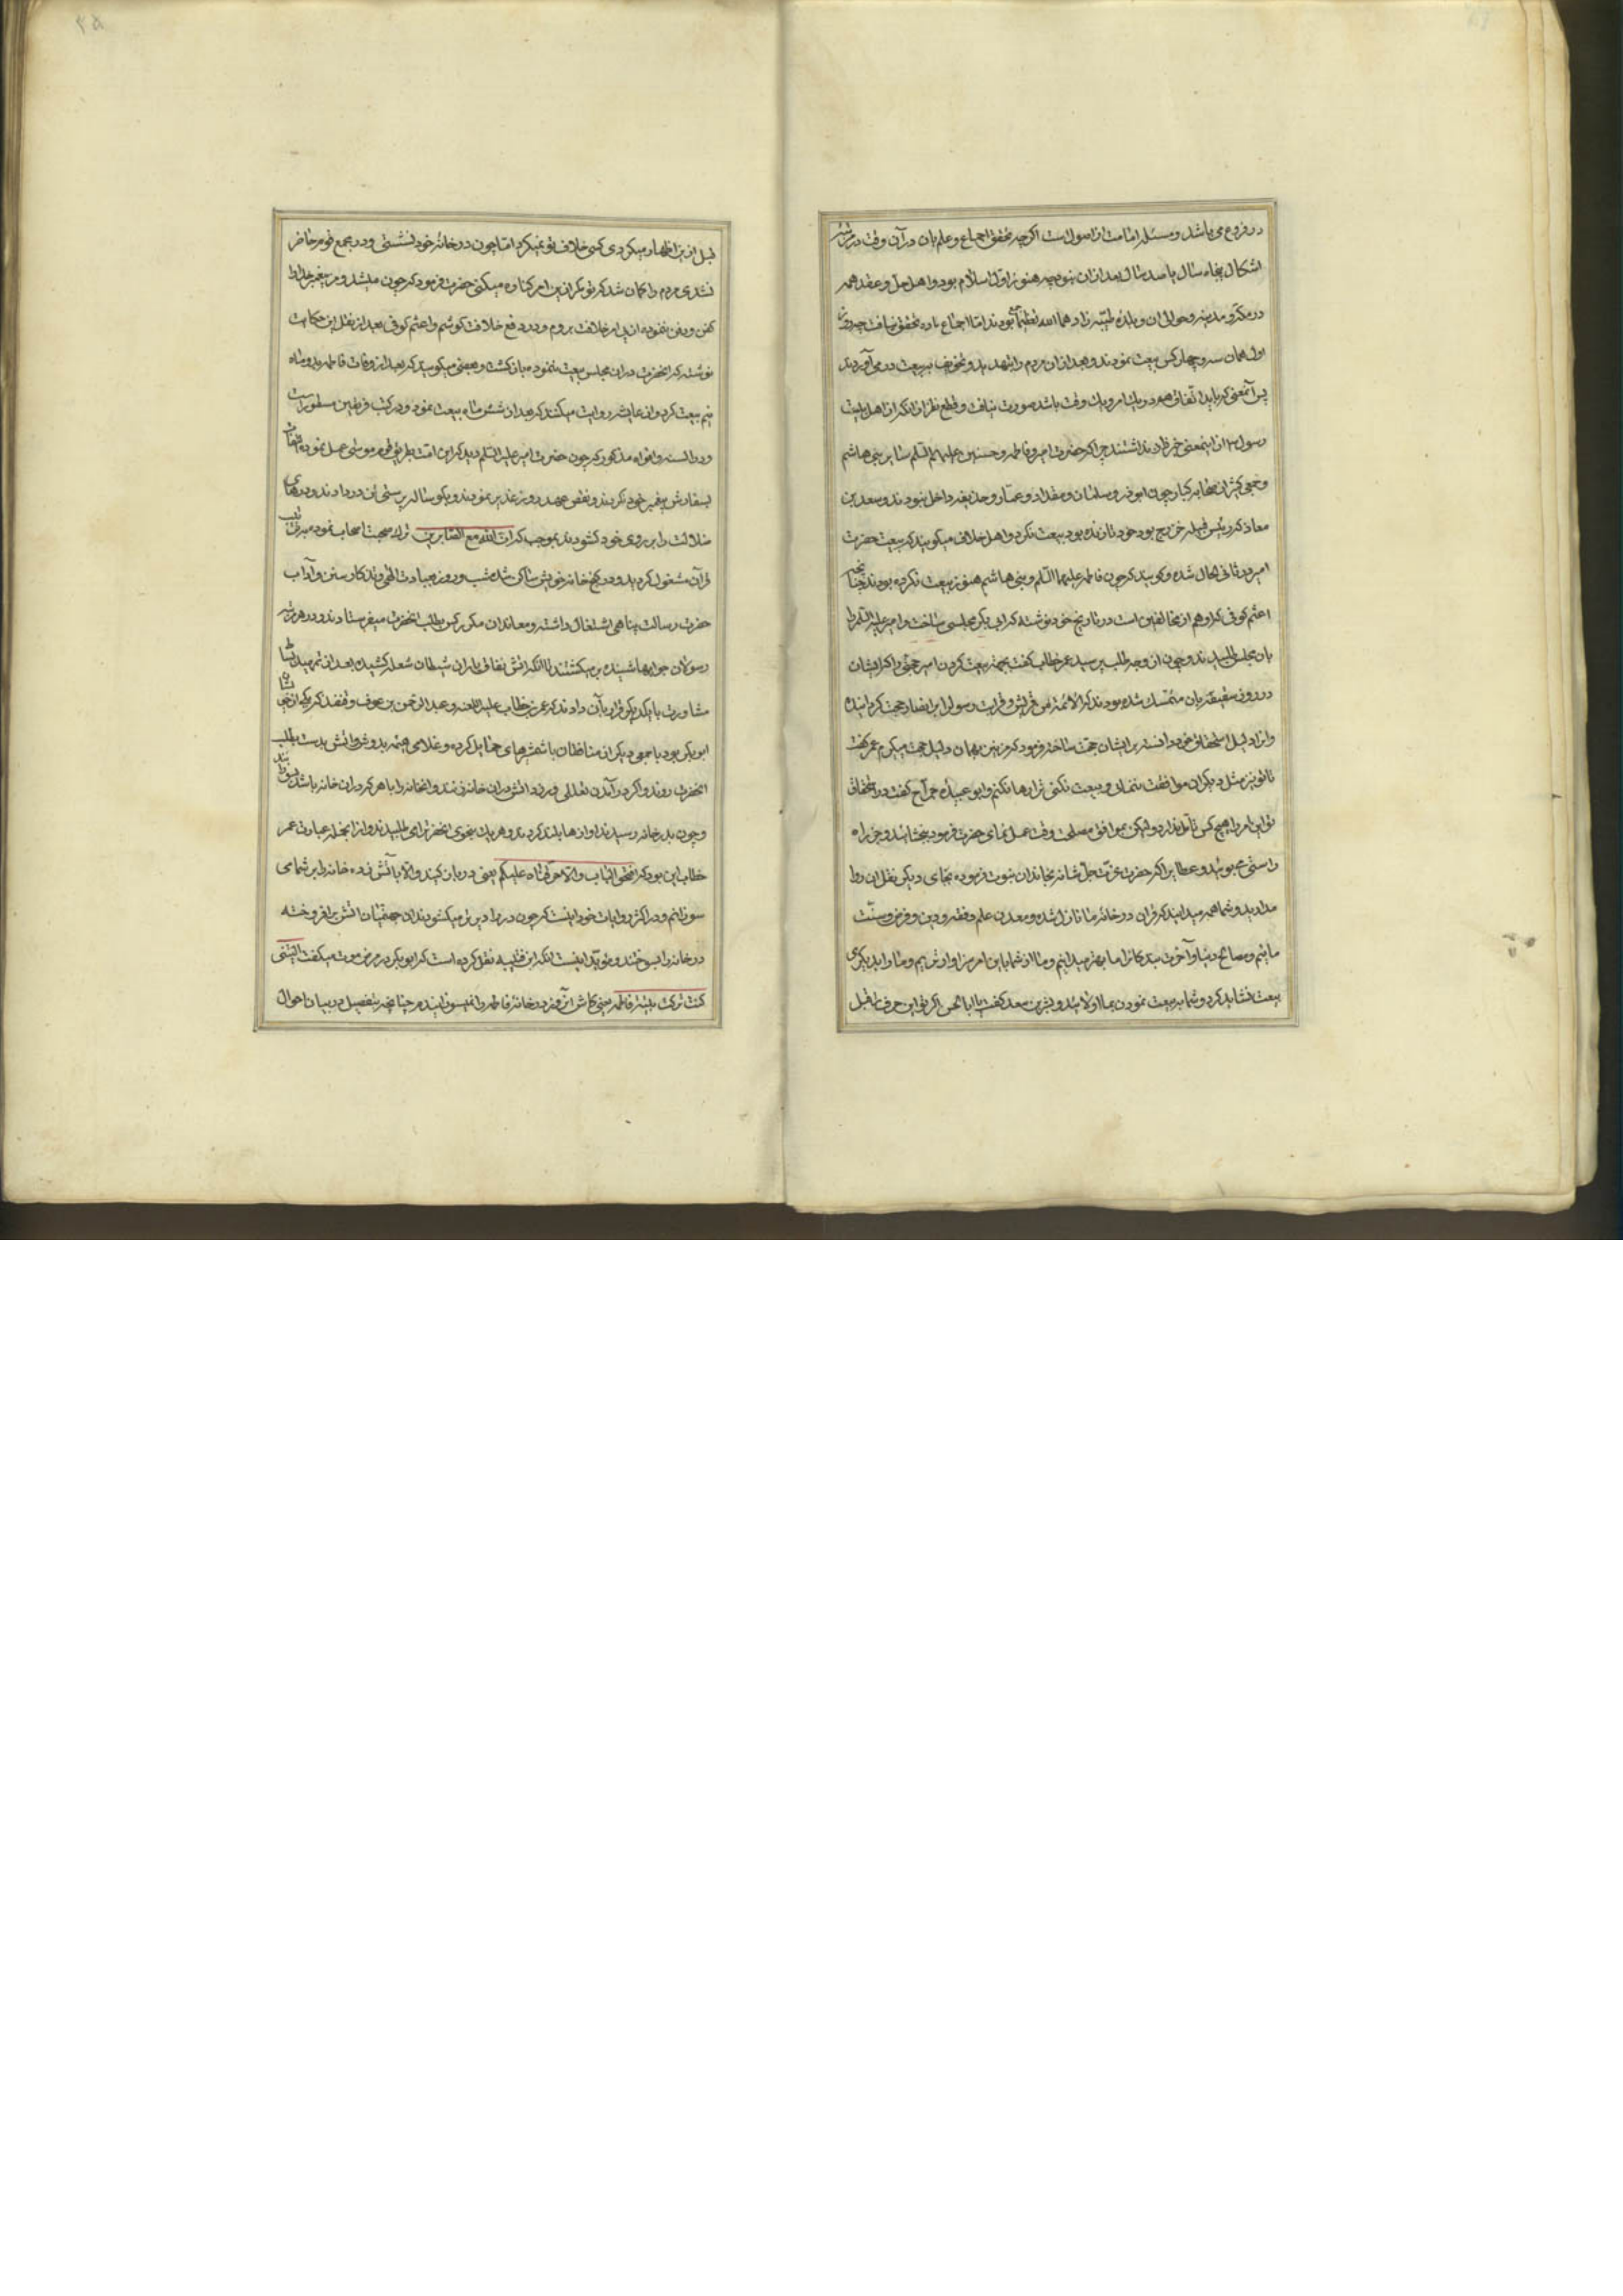 در فروع می باشد و مسئله امامت از اصول است اگرچه تحقق اجماع و علم بان در آن وقت در مرتبه
اشکال پنجاه سال یا صد سال بعد از ان نبود چه هنوز اول اسلام بود و اهل حل و عقد همه
در مکه و مدینه و حوالی ان و بلده طیبه زادهما الله تعظیما بودند اما اجماع باره تحقق نیافت چه روز
اول همان سه و چهار کس بیعت نمودند و بعد از ان مردم را بتهدید و تخویف ببیعت در می آوردند
پس آنمعنی که باید اتفاق همه در یک امر و یک وقت باشد صورت نیافت و قطع نظر از انکه از اهل بیت
رسول از اینمعنی خبر ندا شتند چرا که حضرت امیر و فاطمه و حسنین علیهم السلم سایر بنی هاشم
و جمعی کثیر از صحابه کبار چون ابوذر و سلمان و مقداد و عمار و حذیفه داخل نبودند و سعد بن
معاذ که رئیس قبیله خزرج بود خود تا زنده بود بیعت نکرد و اهل خلاف میگویند که بیعت حضرت
امیر در ثانی الحال شده و گویند که چون فاطمه علیهما السلم و بنی هاشم هنوز بیعت نکرده بودند چنانچه
اعثم کوفی که او هم از مخالفین است در تاریخ خود نوشته که ابی بکر مجلسی ساخت و امیر علیه السلم را
بان مجلس طلبیدند و چون از وجه طلب پرسید عمر خطاب گفت بجهة بیعت کردن امیر جمعی را که ایشان
در روز سقیفه بان متمسک شده بودند که الائمة من قریش و قرابت رسول را بر انصار حجت گردانیده
و انرا دلیل استحقاق خود دانسته بر ایشان حجت ساخته فرمود که من نیز بهمان دلیل حجت میگیرم عمر گفت
تا تو نیز مثل دیگران موافقت ننمائی و بیعت نکنی ترا رها نکنیم و ابو عبیده جراح گفت در استحقاق
تو این امر را هیچ کس تامل ندارد ولیکن بموافق مصلحت وقت عمل نمای حضرت فرمود بخشائید و جز راه
راستی مجوئید و عطایی را که حضرت عزت جل شانه بخاندان نبوت فرموده بجای دیگر نقل ان روا
مدارید و شما همه میدانید که قران در خانه ما نازل شده و معدن علم و فقه و دین و فرض و سنت
مائیم و مصالح دنیا و آخرت بندگانرا ما بهتر میدانیم و ما از شما باین امر سزاوارتریم و ما را بدیگری
بیعت نشاید کرد و شما به بیعت نمودن بما اولائید و بشر بن سعد گفت یا ابا الحسن اگر تو این حرف را قبل
قبل ازین اظهار میکردی کسی خلاف تو نمیکرد اما چون در خانه خود نشستی و در مجمع قوم حاضر
نشدی مردم را گمان شد که تو مگر ازین امر کناره میکنی حضرت فرمود که چون میشد و من پیغمبر خدا را
کفن و دفن ننموده از پی امر خلافت بروم و در دفع خلافت کوشم و اعثم کوفی بعد از نقل این حکایت
نوشته که انحضرت در ان مجلس بیعت ننموده باز گشت و بعضی میگویند که بعد از وفات فاطمه بدو ماه
نیم بیعت کرد و از عایشه روایت میکنند که بعد از شش ماه بیعت نمود و در کتب فریقین مسطور است
و در السنه و افواه مذکور که چون حضرت امیر علیه السلم دید که این امت بطریق قوم موسی عمل نموده
بسفارش پیغمبر خود نکردند و نقض عهد روز غدیر نمودند و بگوساله پرستی تن در دادند و درهای
ضلالت را بر روی خود گشودند بموجب کریمه ان الله مع الصابرین ترک صحبت اصحاب نمود
قرآن مشغول گردید و در کنج خانه خویش ساکن شده شب و روز بعبادت الهی و تذکار سنن و آداب
حضرت رسالت پناهی اشتغال داشته و معاندان مکرر کس بطلب انحضرت میفرستادند و در هر مرتبه
رسولان جوابها شنیده بر میگشتند تا انکه اتش نفاق یاران شیطان شعله کشیده بعد از تمهید
مشاورت با یکدیگر قرار بآن دادند که عمر بن خطاب علیه اللعنه و عبد الرحمن بن عوف و قنفذ که یکی از
ابو بکر بود با جمعی دیگر از منافقان با شمشیرهای حمایل کرده و غلامی هیمه بدوش و اتش بدست بطلب
انحضرت روند و اگر در آمدن تعللی ورزد اتش در ان خانه زنند و انخانه را با هر که در ان خانه باشد بسوزانند
و چون بدر خانه رسیدند اوازها بلند کردند و هر یک بنحوی انحضرترا می طلبیدند و از انجمله عبارت عمر
خطاب این بود که افتحوا الباب والا حرقناه علیکم یعنی در باز کنید والا بآتش زده خانه را بر شما می
سوزانم و در اکثر روایات خود اینست که چون در را دیرتر میگشودند ان جهنمیان اتش برافروخته
در خانه را بسوختند و مؤید اینست انکه ابن قتیبه نقل کرده است که ابو بکر در مرض موت میگفت لیتنی
کنت ترکت بیت فاطمه یعنی کاش انروز در خانه فاطمه را نمیسوزانیدم چنانچه بتفصیل در بیان احوال